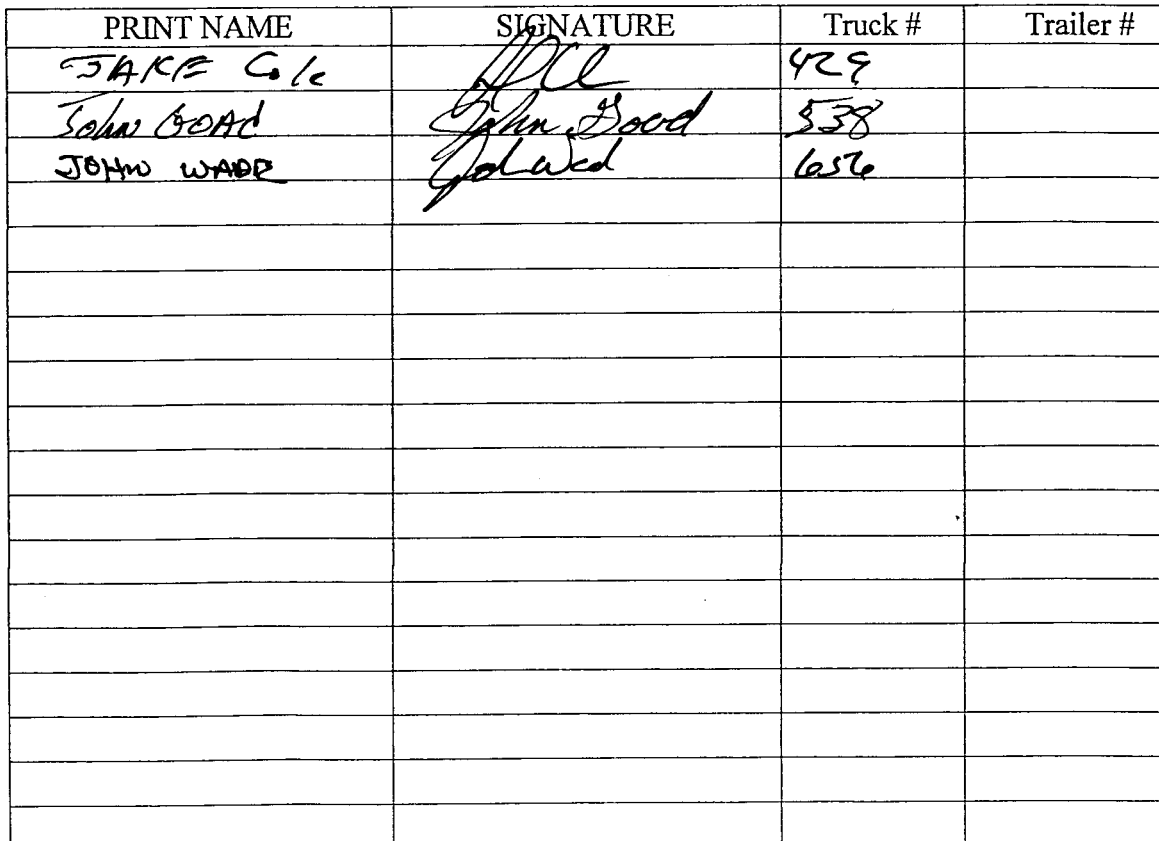 PRINT NAME SIGNATURE Truck # Trailer #
JAKE Cole 429
John GOAd John Goad 538
JOHN WADE 656